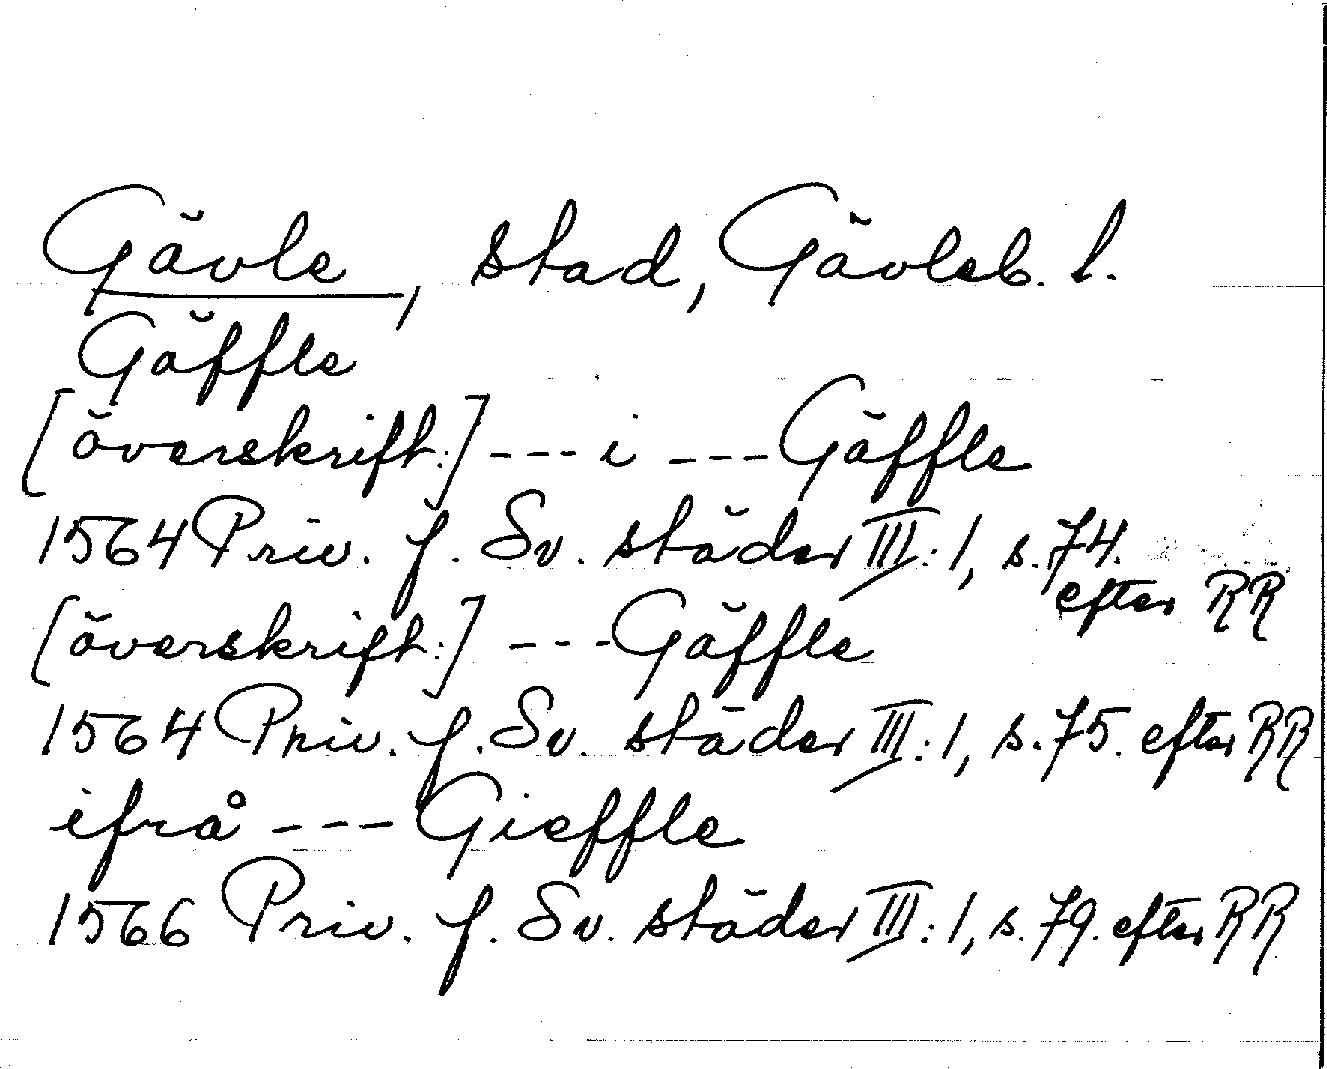 Gävle, stad, Gävleb. l.
Gäffle
[överskrift:] --- i --- Gäffle
1564 Priv. f. Sv. städer III:1, s. 74.
efter RR
[överskrift:] --- Gäffle
1564 Priv. f. Sv. städer III:1, s. 75. efter RR
ifrå --- Gieffle
1566 Priv. f. Sv. städer III:1, s. 79. efter RR